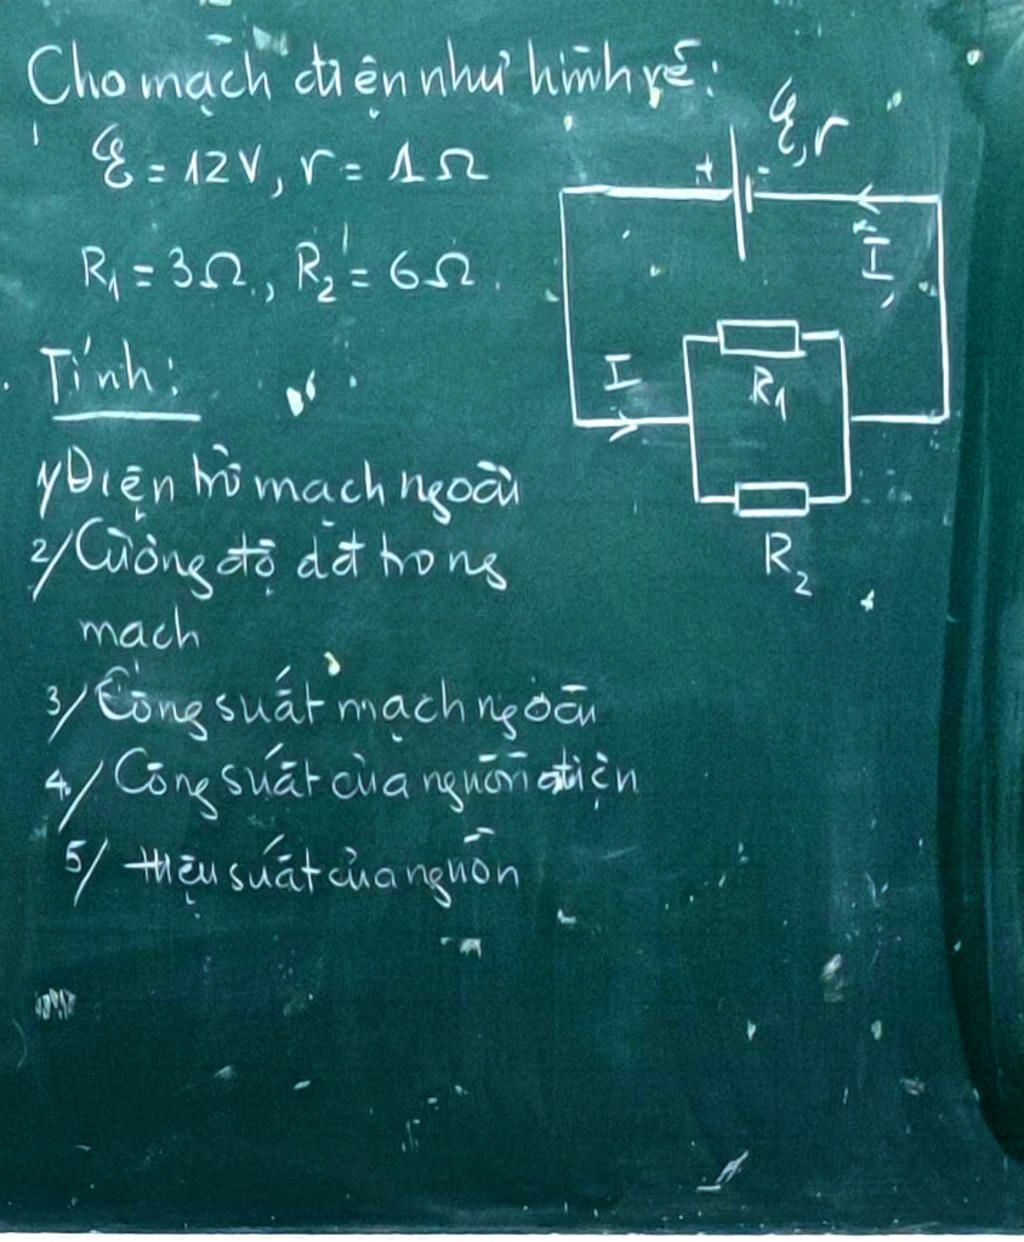 Cho mạch điện như hình vẽ:
ℰ = 12V, r = 1Ω
ℰ, r
+ -
I
R₁ = 3Ω, R₂ = 6Ω.
Tính:
I
R₁
1/ Điện trở mạch ngoài
R₂
2/ Cường độ dđ trong
mạch
3/ Công suất mạch ngoài
4/ Công suất của nguồn điện
5/ Hiệu suất của nguồn